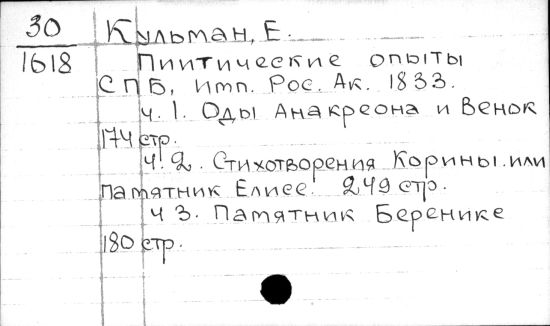 30
1618
Кульман, Е.
Пиитические опыты
СПБ, Имп. Рос. Ак. 1833.
ч. 1. Оды Анакреона и Венок
174 стр.
ч. 2. Стихотворения Корины или
Памятник Елисе. 249 стр.
ч 3. Памятник Беренике
180 стр.